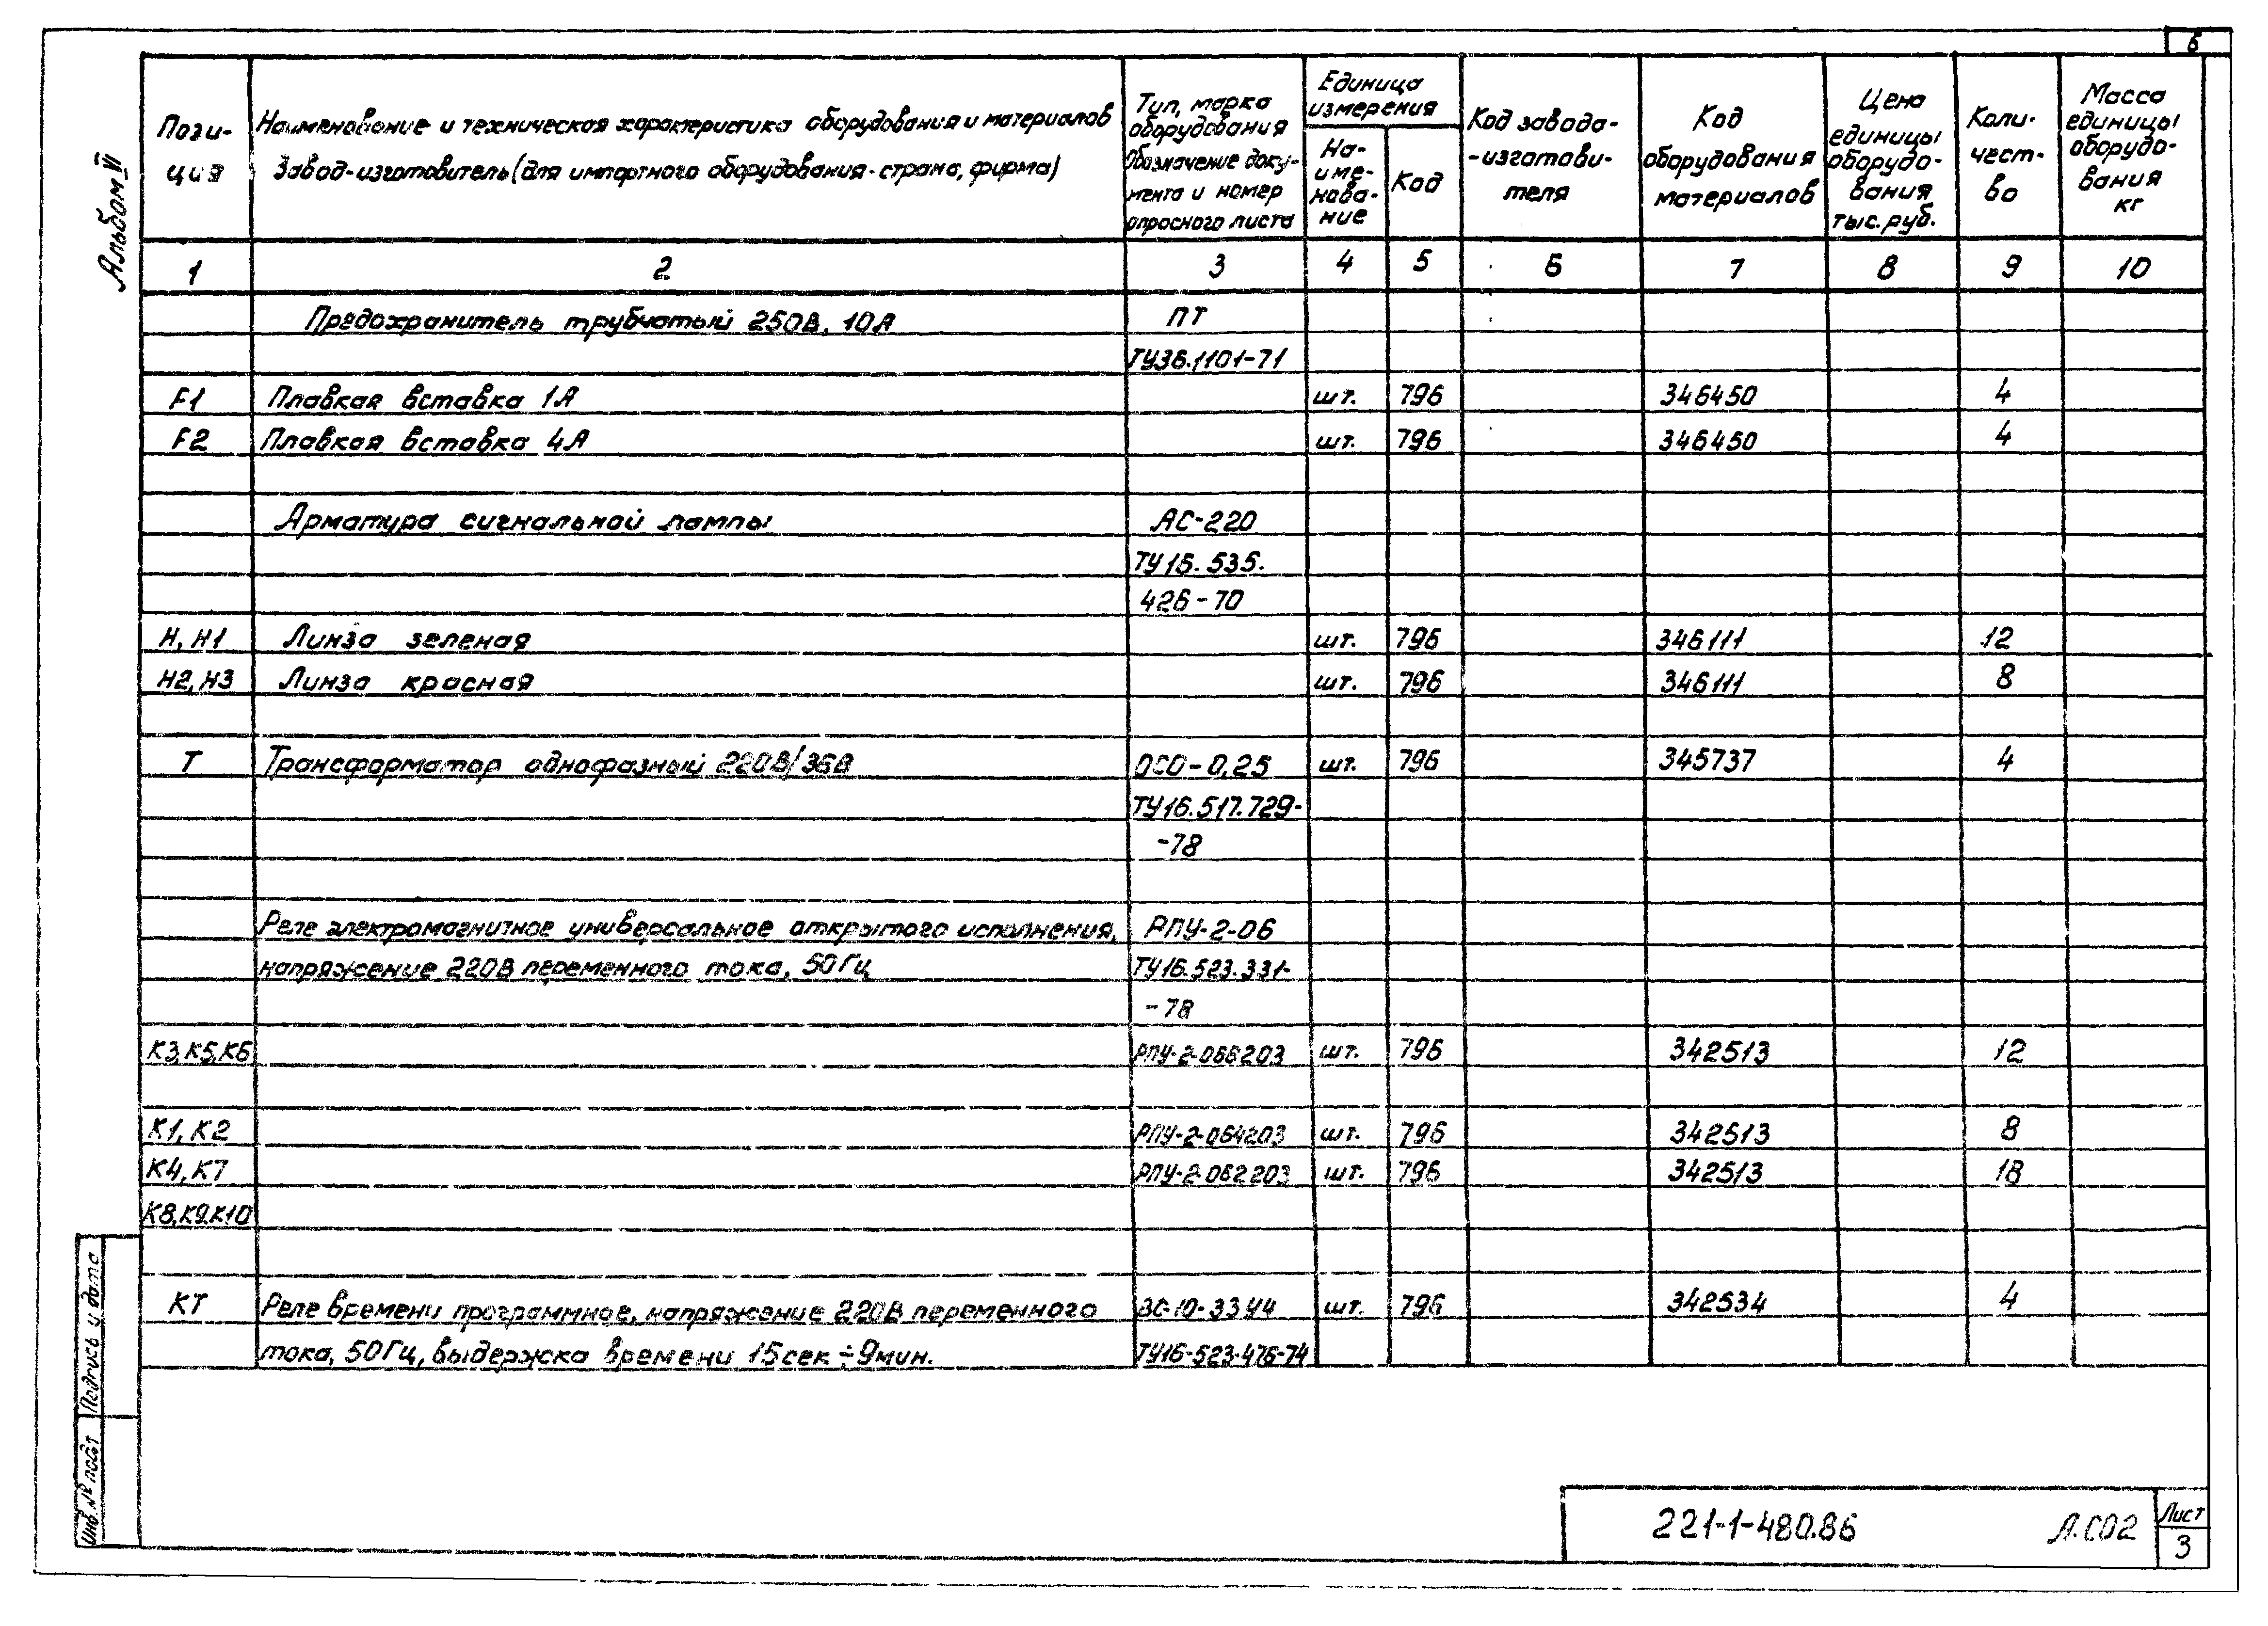 6
Альбом VI
Пози-
ция
Наименование и техническая характеристика оборудования и материалов
Завод-изготовитель (для импортного оборудования - страна, фирма)
Тип, марка
оборудования
Обозначение доку-
мента и номер
опросного листа
Единица
измерения
На-
име-
нова-
ние
Код
Код завода-
-изготови-
теля
Код
оборудования
материалов
Цена
единицы
оборудо-
вания
тыс. руб.
Коли-
чест-
во
Масса
единицы
оборудо-
вания
кг
1 2 3 4 5 6 7 8 9 10
Предохранитель трубчатый 250В, 10А ПТ
ТУ36.1101-71
F1 Плавкая вставка 1А шт. 796 346450 4
F2 Плавкая вставка 4А шт. 796 346450 4
Арматура сигнальной лампы АС-220
ТУ16.535.
426-70
Н, Н1 Линза зеленая шт. 796 346111 12
Н2, Н3 Линза красная шт. 796 346111 8
Т Трансформатор однофазный 220В/36В ОСО-0,25 шт. 796 345737 4
ТУ16.517.729-
-78
Реле электромагнитное универсальное открытого исполнения, РПУ-2-06
напряжение 220В переменного тока, 50Гц ТУ16.523.331-
-78
К3, К5, К6 РПУ-2-066203 шт. 796 342513 12
К1, К2 РПУ-2-064203 шт. 796 342513 8
К4, К7 РПУ-2-062203 шт. 796 342513 18
К8, К9, К10
КТ Реле времени программное, напряжение 220В переменного ВС-10-33У4 шт. 796 342534 4
тока, 50Гц, выдержка времени 15 сек ÷ 9 мин. ТУ16-523.476-74
Подпись и дата
Инв. № подл
221-1-480.86 А.СО2
Лист
3